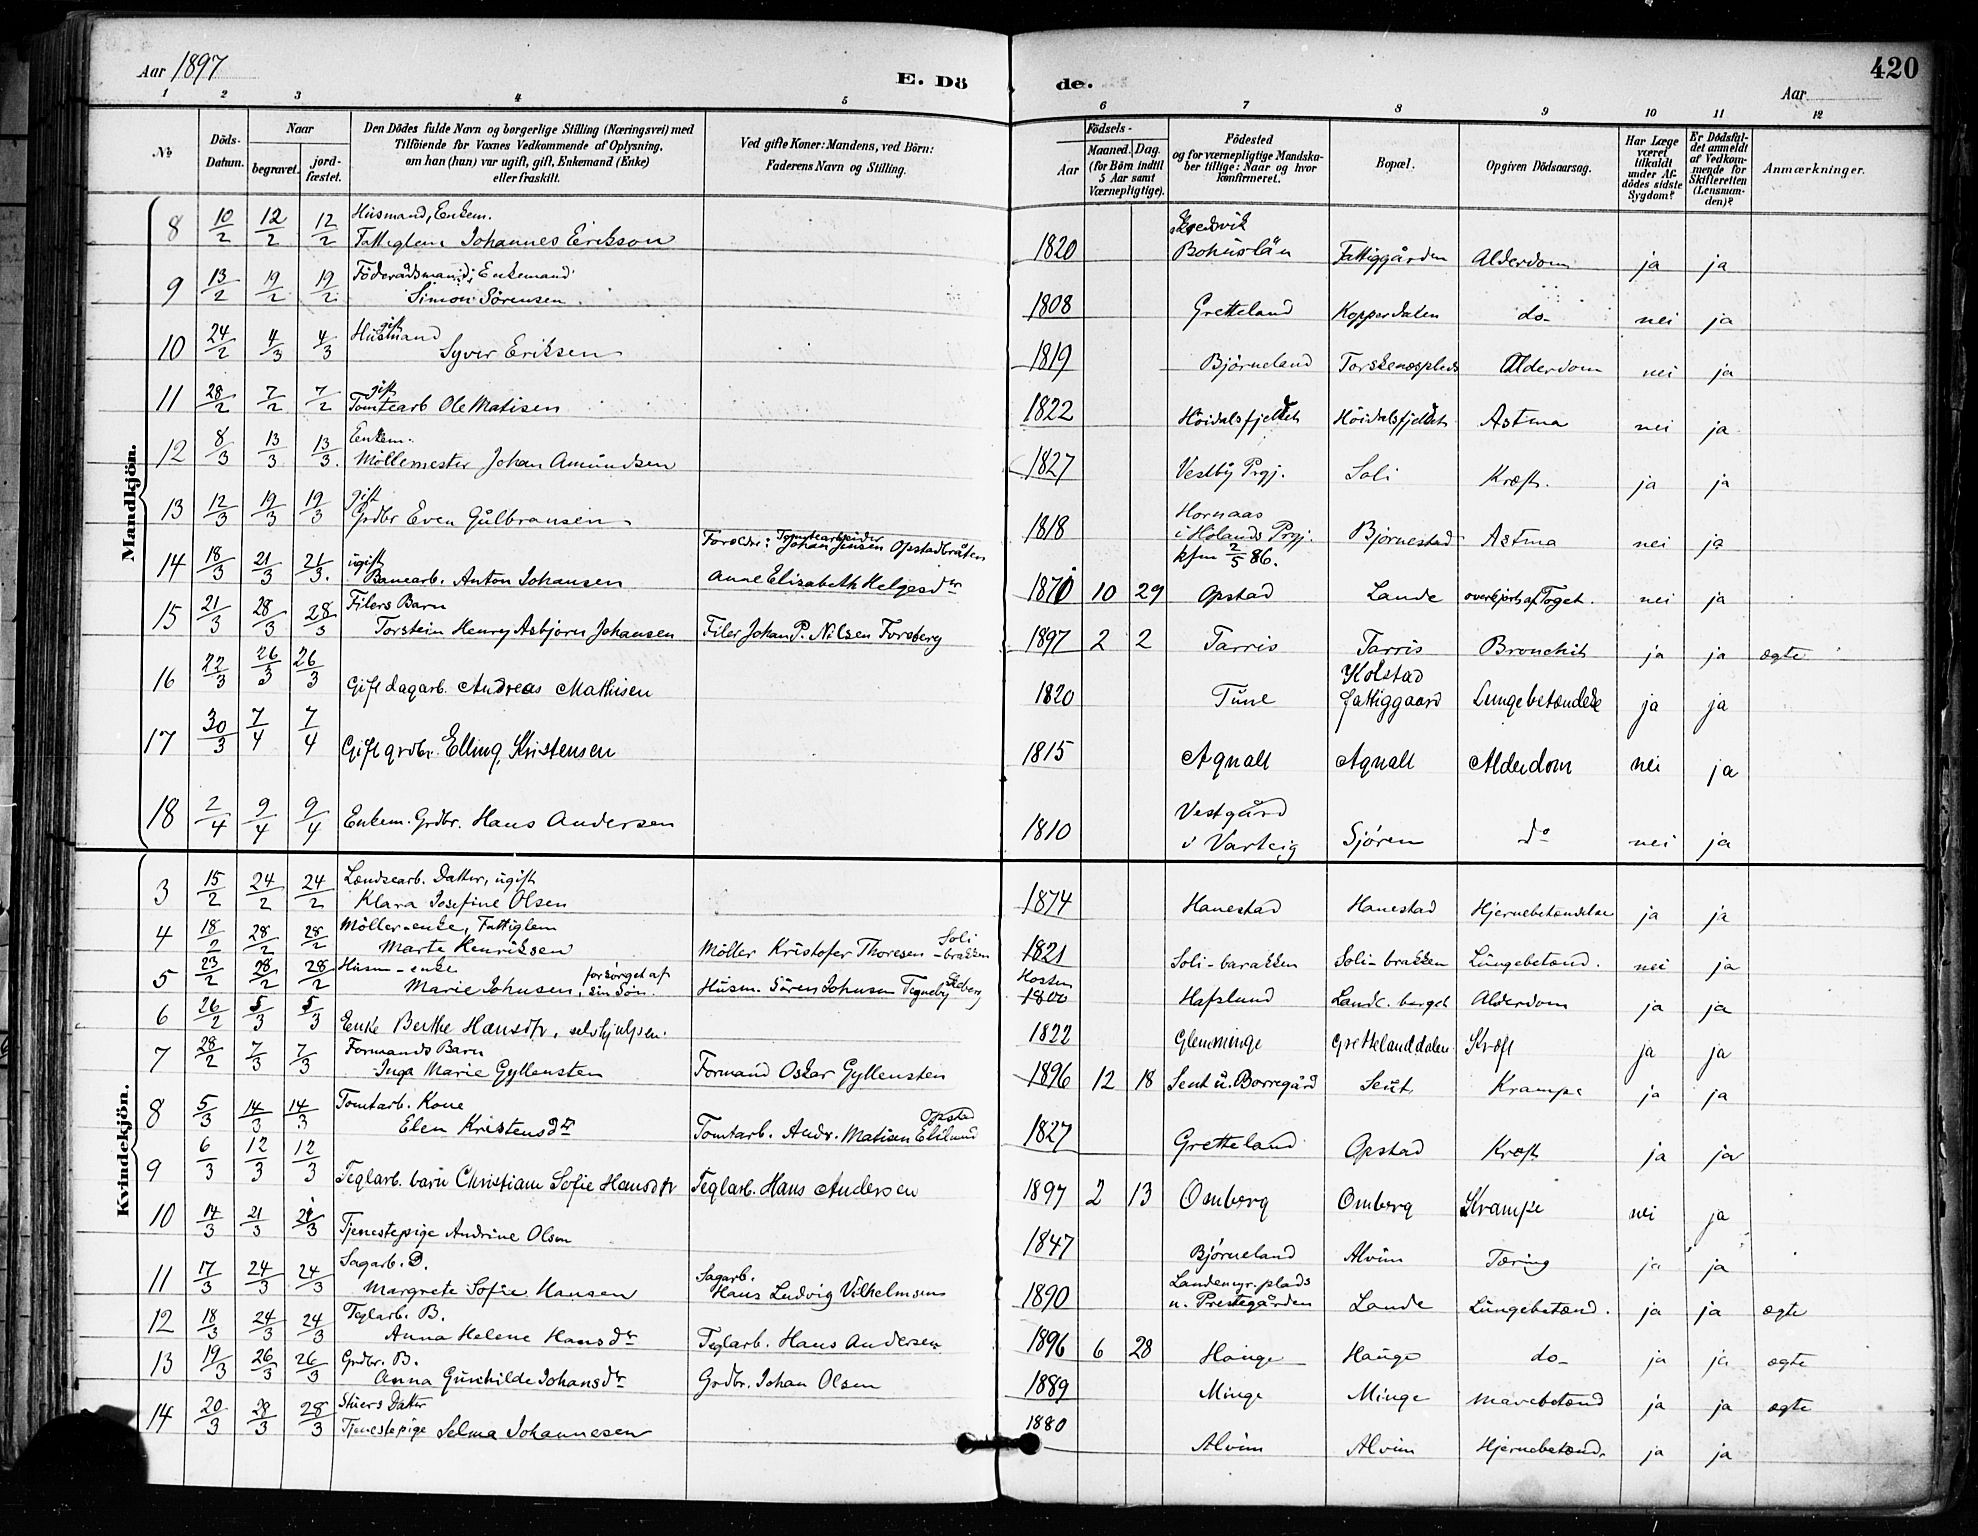 Aar 1897
E. Dö
de.
420
Aar
1 2 3 4 5 6 7 8 9 10 11 12
№
Döds-Datum.
Naar
begravet.
jord-fæstet.
Den Dödes fulde Navn og borgerlige Stilling (Næringsvei) med
Tilföiende for Voxnes Vedkommende af Oplysning,
om han (hun) var ugift, gift, Enkemand (Enke)
eller fraskilt.
Ved gifte Koner: Mandens, ved Börn:
Faderens Navn og Stilling.
Födsels-
Aar
Maaned. Dag.
(for Börn indtil
5 Aar samt
Værnepligtige).
Födested
og for værnepligtige Mandska-
ber tillige: Naar og hvor
konfirmeret.
Bopæl.
Opgiven Dödsaarsag.
Har Læge
været
tilkaldt
under Af-
dödes sidste
Sygdom?
Er Dödsfal-
det anmeldt
af Vedkom-
mende for
Skifteretten
(Lensman-
den)?
Anmærkninger.
Mandkjön.
8 10/2 12/2 12/2 Husmand, Enkem. Fattiglem Johannes Erikson 1820 Bohuslän Fattiggården Alderdom ja ja
9 13/2 19/2 19/2 Föderådsmand, Enkemand Simon Sörensen 1808 Gretteland Kopperdalen do- nei ja
10 24/2 4/3 4/3 gift Husmand Syver Eriksen 1819 Bjørneland Torskenespleds Alderdom nei ja
11 28/2 7/2 7/2 gift Tomtearb Ole Matisen 1822 Höidalsfjeldet Höidalsfjeldet Astma nei ja
12 8/3 13/3 13/3. Enkem. Möllemester Johan Amundsen 1827 Vestby Prgj. Soli Kræft. ja ja
13 12/3 19/3 19/3 gift Grdbr Even Gulbransen 1818 Hornaas i Hölands Prgj. Bjørnestad Astma nei ja
14 18/3 21/3 21/3. ugift Banearb. Anton Johansen Forældre: Tomtearbeider Johan Jensen Opstadbråten Anne Elisabeth Helgesdtr kfm 2/5 86. 1870 10 29 Opstad Lande overkjört af Toget. nei ja
15 21/3 28/3 28/3 Filers Barn Torstein Henry Asbjørn Johansen Filer Johan P. Nilsen Forsberg 1897 2 2 Tarris Tarris Bronchit ja ja ægte
16 22/3 26/3 26/3 Gift dagarb. Andreas Mathisen 1820 Tune Kolstad fattiggaard Lungebetændelse ja ja
17 30/3 7/4 7/4 Gift grdbr. Elling Kristensen 1815 Agnalt Agnalt Alderdom nei ja
18 2/4 9/4 9/4 Enkem. Grdbr. Hans Andersen 1810 Vestgård i Varteig Sjøren do nei ja
Kvindekjön.
3 15/2 24/2 24/2 Lændsearb. Datter, ugift Klara Josefine Olsen 1874 Hanestad Hanestad Hjernebetændelse ja ja
4 18/2 28/2 28/2 Möller-enke, Fattiglem Marte Henriksen Möller Kristofer Thoresen Soli-brakken 1821 Soli-barakken Soli-brakken Lungebetænd. nei ja
5 23/2 28/2 28/2 Husm-enke Marie Johnsen, forsörget af sin Sön. Husm. Sören Johnsen Tegneby 1800 Hafslund Alderdom ja ja
6 26/2 5/3 5/3 Enke Berthe Hansdtr, selvhjulpen. 1822 Glemminge Grettelanddalen Kræft ja ja
7 28/2 7/3 7/3 Formands Barn Inga Marie Gyllensten Formand Oskar Gyllensten 1896 12 18 Seut u. Borregård Seut Krampe ja ja
8 5/3 14/3 14/3 Tomtarb. Kone Elen Kristensdtr Tomtarb. Andr. Matisen Opstad Eklund 1827 Gretteland Opstad Kræft ja ja
9 6/3 12/3 12/3 Teglarb. barn Christiane Sofie Hansdtr Teglarb. Hans Andersen 1897 2 13 Omberg Omberg Krampe nei ja
10 14/3 21/3 21/3 Tjenestepige Andrine Olsen 1847 Bjørneland Alvim Tæring ja ja
11 17/3 24/3 24/3 Sagarb. D. Margrete Sofie Hansen Sagarb. Hans Ludvig Vilhelmsen 1890 Landemyr. plads u. Prestegården Lande Lungebetænd. ja ja ægte
12 18/3 24/3 24/3 Teglarb. B. Anna Helene Hansdtr Teglarb. Hans Andersen 1896 6 28 Hauge Hauge do- ja ja ægte
13 19/3 26/3 26/3 Grdbr. B. Anna Gunhilde Johansdtr Grdbr. Johan Olsen 1889 Minge Minge Mavebetænd ja ja ægte
14 20/3 28/3 28/3 Datter Tjenestepige Selma Johannesen 1880 Alvim Alvim Hjernebetænd. ja ja